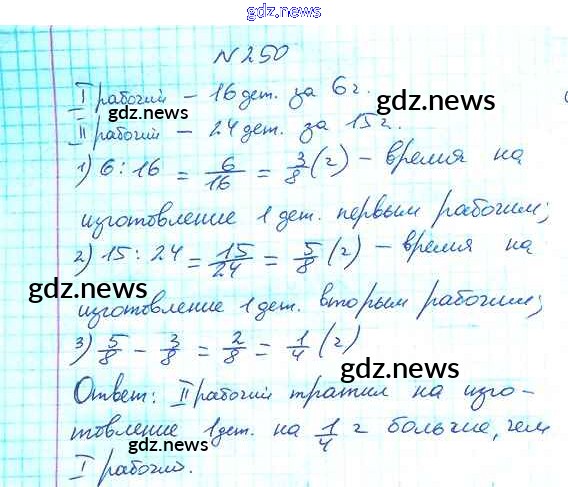 gdz.news
N 250
I рабочий - 16 дет. за 6 г.
gdz.news
gdz.news
II рабочий - 24 дет. за 15 г.
1) 6 : 16 = 6/16 = 3/8 (г) - время на
изготовление 1 дет. первым рабочим;
2) 15 : 24 = 15/24 = 5/8 (г) - время на
gdz.news
изготовление 1 дет. вторым рабочим;
3) 5/8 - 3/8 = 2/8 = 1/4 (г)
gdz.news
Ответ: II рабочий тратил на изго-
товление 1 дет. на 1/4 г больше, чем
gdz.news
I рабочий.